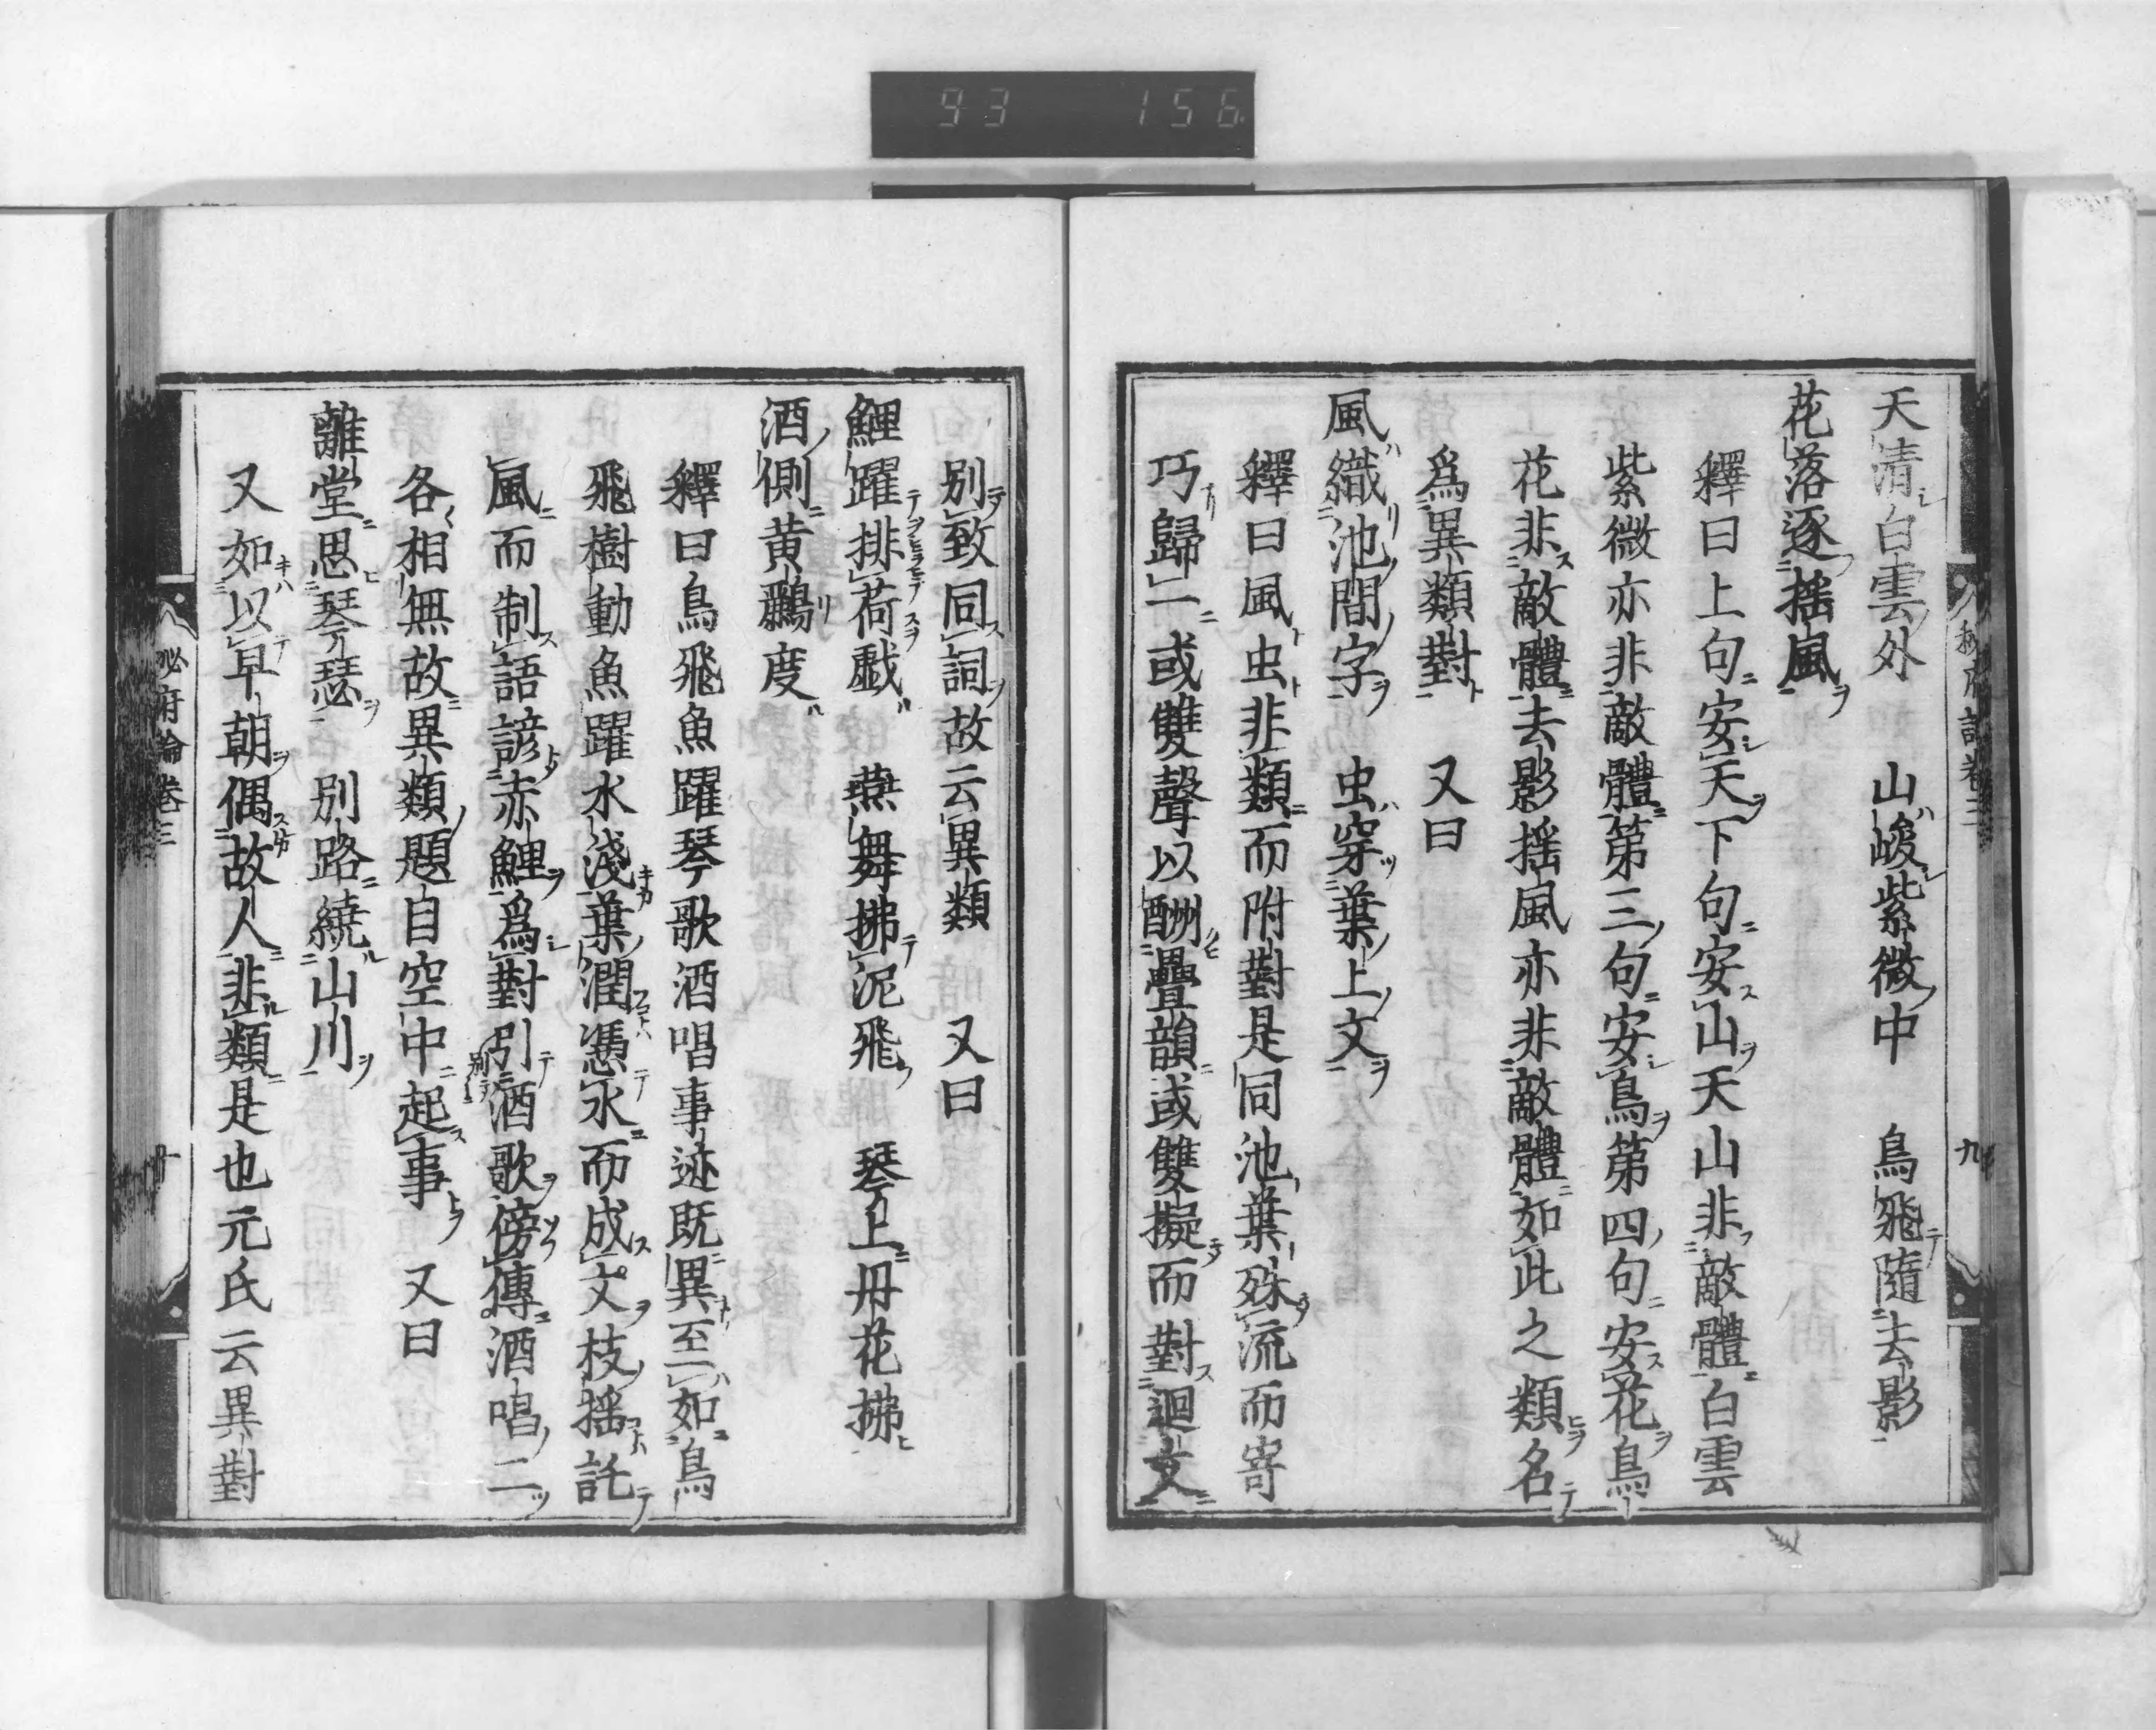 93 156
天清白雲外　山峻紫微中　鳥飛隨去影
花落逐揺風
釋曰上句安天下句安山天山非敵體白雲
紫微亦非敵體第三句安鳥第四句安花鳥
花非敵體去影揺風亦非敵體如此之類名
爲異類對　又曰
風織池間字　虫穿葉上文
釋曰風虫非類而附對是同池葉殊流而寄
巧歸一或雙聲以酬疊韻或雙擬而對迴文
九
別致同詞故云異類　又曰
鯉躍排荷戯　燕舞拂泥飛　琴上丹花拂
酒側黄鸝度
釋曰鳥飛魚躍琴歌酒唱事迹既異至如鳥
飛樹動魚躍水淺葉潤憑水而成文枝揺託
風而制語諺赤鯉爲對引酒歌傍傳酒唱二
各相無故異類題自空中起事　又曰
離堂思琴瑟　別路繞山川
又如以早朝偶故人非類是也元氏云異對
祕府論卷三
十